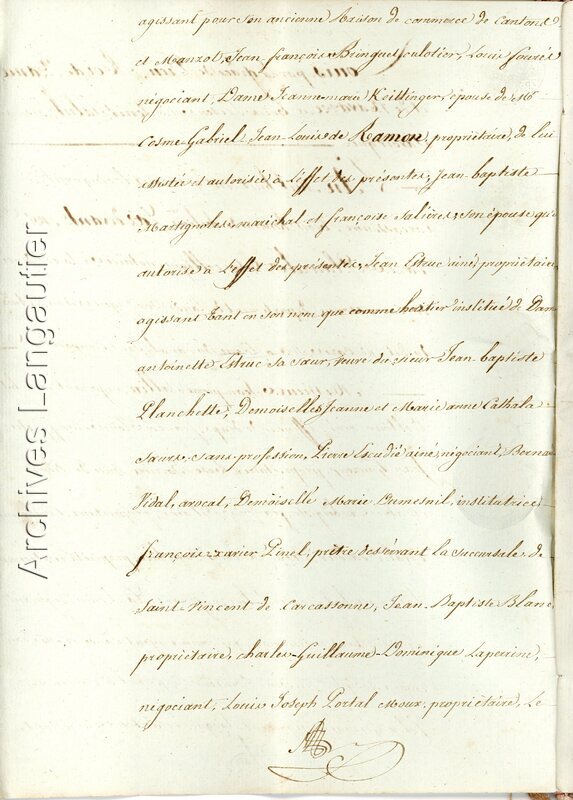 agissant pour son ancienne Raison de commerce de
et Manzot, Jean-françois Bringuet culotier, Louis fourés
négociant, Dame Jeanne-marie Keittinger, épouse de
Cosme-Gabriel Jean-Louis de Ramon, propriétaire, de lui
assistée et autorisée à L'effet des présentes, Jean-baptiste
Martignoles, maréchal et françoise Salières, son épouse qu'il
autorise à L'effet des présentes, Jean Estruc ainé, propriétaire,
agissant tant en son nom que comme héritier institué de
antoinette Estruc sa sœur, veuve du sieur Jean-baptiste
Planchette, Demoiselles Jeanne et Marie anne Cathala
Sœurs, sans profession, Pierre Escudié ainé, négociant,
Vidal, avocat, Demoiselle Marie Dumesnil, institutrice,
françois-xavier Pinel, prêtre desservant la succursale, de
Saint-Vincent de Carcassonne, Jean-Baptiste Blanc,
propriétaire, charles-Guillaume-Dominique Laperrine,
négociant, Louis Joseph Portal Moux, propriétaire, Le
Archives Langautier